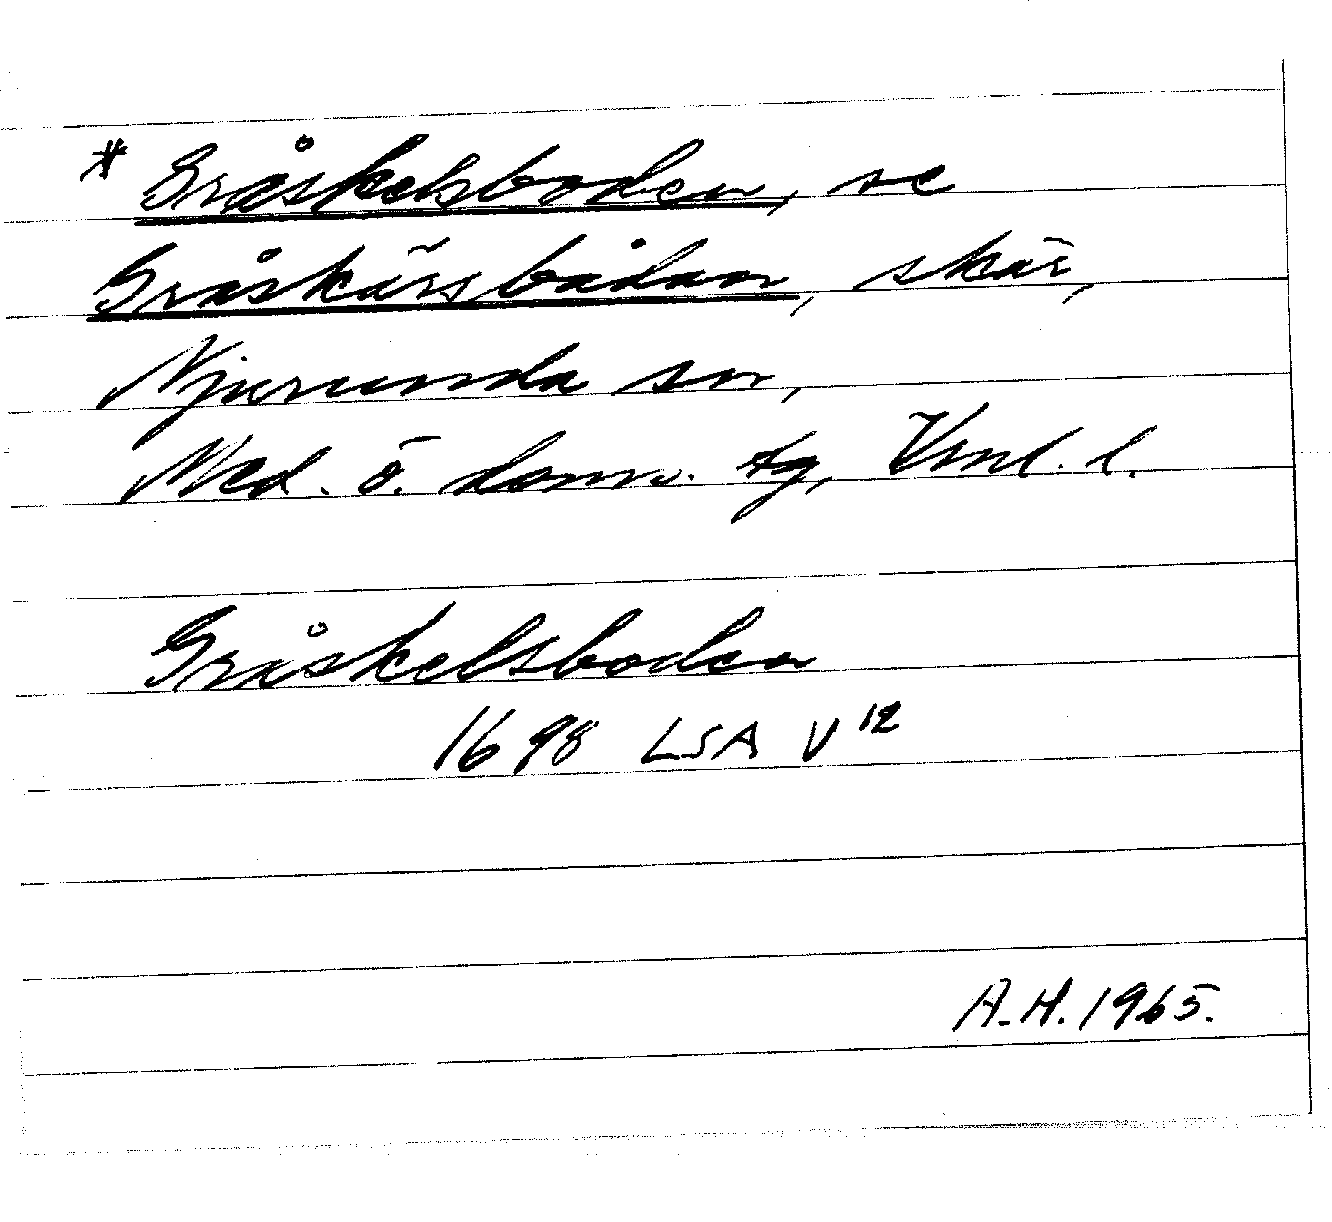 * Gråskelsboden, se
Gråskärsbådan, skär,
Njurunda sn,
Med. ö. doms. tg, Vnl. l.
Gråskelsboden
1698 LSA V 12
A.H. 1965.